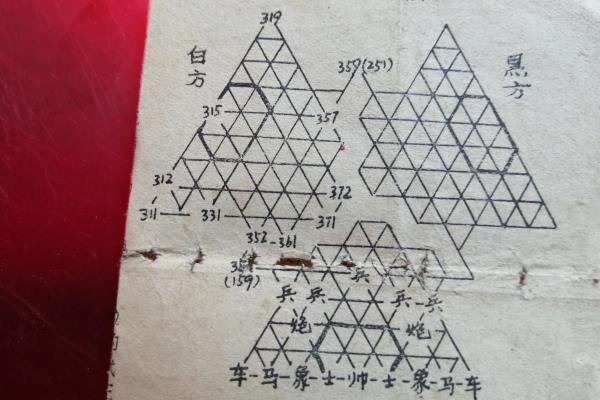 319
白方
359(251)
黑方
315
357
312
372
311
331
371
352-361
(159)
兵
兵 兵 兵-兵
炮 炮
车-马-象-士-帅-士-象-马-车